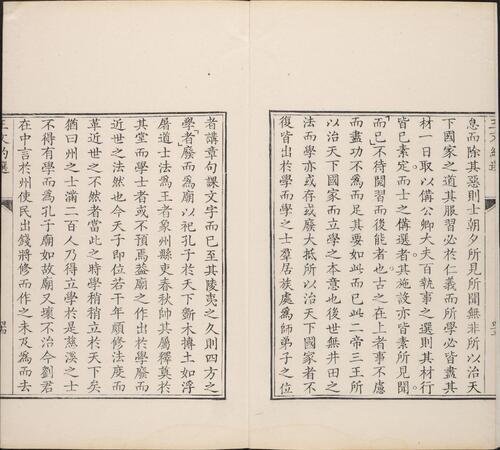 息而除其惡則士朝夕所見所聞無非所以治天
下國家之道其服習必於仁義而所學必皆盡其
材一日取以備公卿大夫百執事之選則其材行
皆已素定而士之備選者其施設亦皆素所見聞
而已不待閱習而後能者也古之在上者事不慮
而盡功不為而足其要如此而已此二帝三王所
以治天下國家而立學之本意也後世無井田之
法而學亦或存或廢大抵所以治天下國家者不
復皆出於學而學之士羣居族處為師弟子之位
者講章句課文字而已至其陵夷之久則四方之
學者廢而為廟以祀孔子於天下斵木摶土如浮
屠道士法為王者象州縣吏春秋帥其屬釋奠於
其堂而學士者或不預焉葢廟之作出於學廢而
近世之法然也今天子即位若干年頗修法度而
革近世之不然者當此之時學稍稍立於天下矣
猶曰州之士滿二百人乃得立學於是慈溪之士
不得有學而為孔子廟如故廟又壞不治今劉君
在中言於州使民出錢將修而作之未及為而去